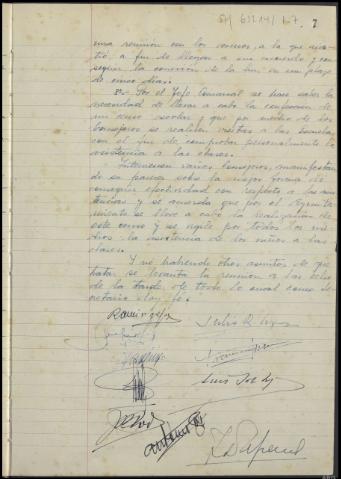 7
una reunión con los vecinos, a la que asis-
tió, a fin de llegar a un acuerdo y con-
seguir la conexión de la luz en un plazo
de cinco días.
Por el Jefe Comarcal se hace saber la
necesidad de llevar a cabo la confección de
un censo escolar y que por medio de los
Consejeros se realicen visitas a las Escuelas
con el fin de comprobar personalmente la
asistencia a las clases.
Intervienen varios Consejeros, manifestan-
do su parecer sobre la mejor forma de
conseguir efectividad con respecto a las asis-
tencias y se acuerda que por el Ayunta-
miento se lleve a cabo la realización de
este censo y se vigile por todos los me-
dios la asistencia de los niños a las
clases.
Y no habiendo otros asuntos de que
tratar se levanta la reunión a las ocho
de la tarde, de todo lo cual como Se-
cretario doy fe.